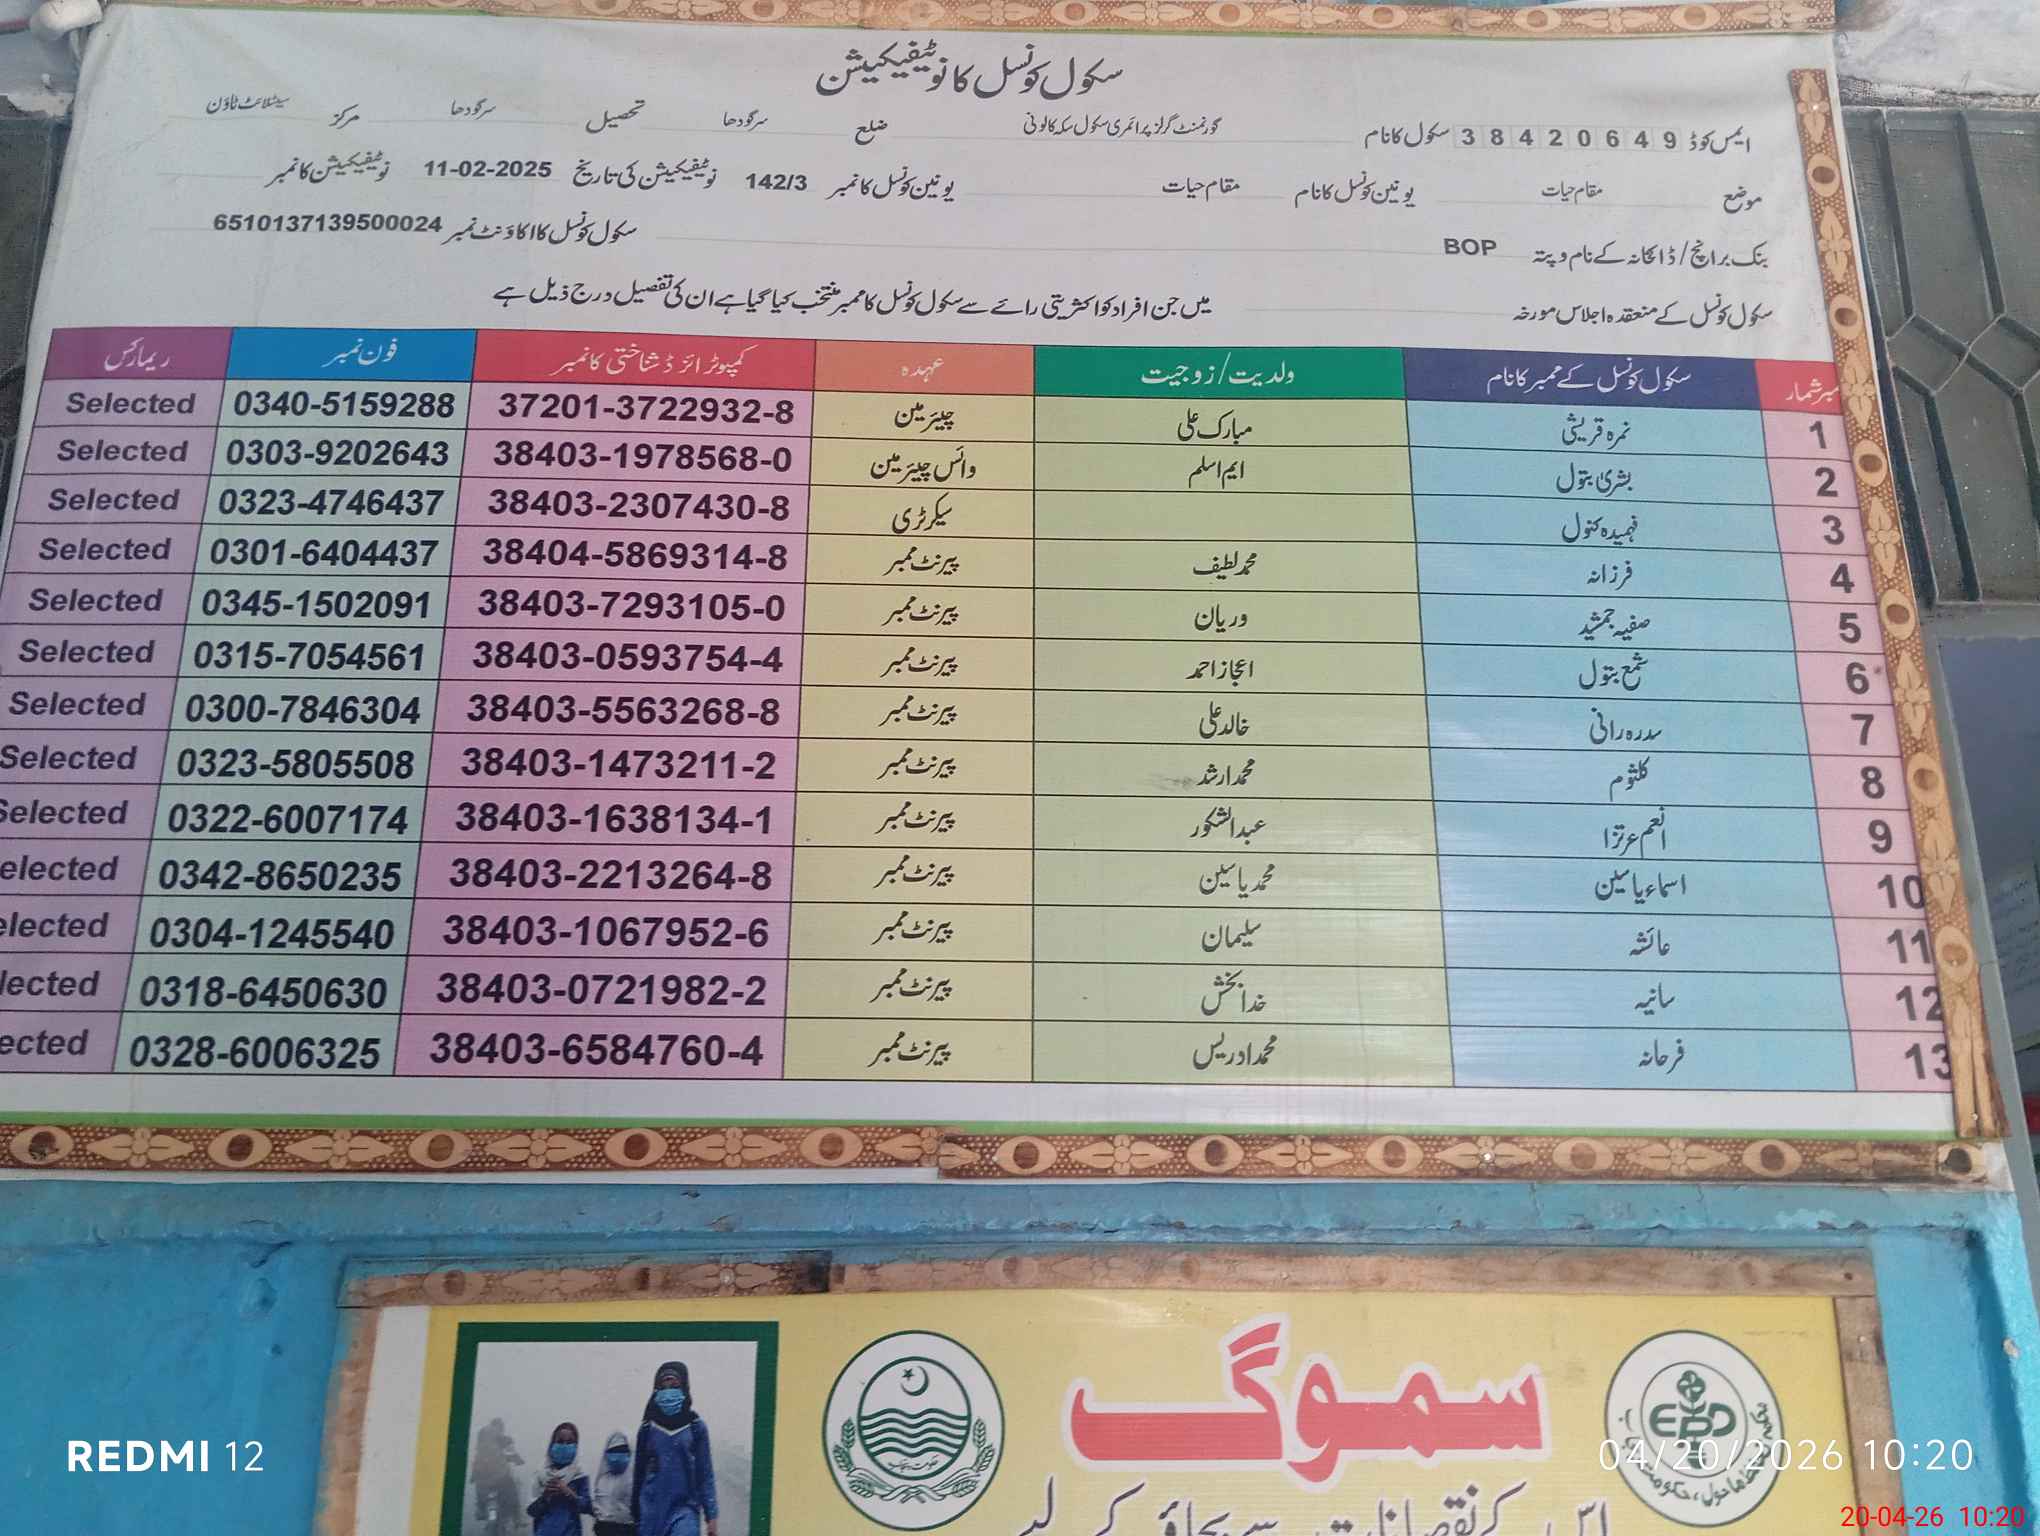 سکول کونسل کا نوٹیفیکیشن
ایمس کوڈ 38420649 سکول کا نام گورنمنٹ گرلز پرائمری سکول سکہ کالونی ضلع سرگودھا تحصیل سرگودھا مرکز سیٹلائٹ ٹاؤن
موضع مقام حیات یونین کونسل کا نام مقام حیات یونین کونسل کا نمبر 142/3 نوٹیفیکیشن کی تاریخ 11-02-2025 نوٹیفیکیشن کا نمبر
بنک برانچ / ڈاکخانہ کے نام و پتہ BOP سکول کونسل کا اکاؤنٹ نمبر 6510137139500024
سکول کونسل کے منعقدہ اجلاس مورخہ میں جن افراد کو اکثریتی رائے سے سکول کونسل کا ممبر منتخب کیا گیا ہے ان کی تفصیل درج ذیل ہے
نمبر شمار سکول کونسل کے ممبر کا نام ولدیت / زوجیت عہدہ کمپیوٹرائزڈ شناختی کا نمبر فون نمبر ریمارکس
1 نمرہ قریشی مبارک علی چیئرمین 37201-3722932-8 0340-5159288 Selected
2 بشریٰ بتول ایم اسلم وائس چیئرمین 38403-1978568-0 0303-9202643 Selected
3 فہمیدہ کنول سیکرٹری 38403-2307430-8 0323-4746437 Selected
4 فرزانہ محمد لطیف پیرنٹ ممبر 38404-5869314-8 0301-6404437 Selected
5 صفیہ جمشید وریان پیرنٹ ممبر 38403-7293105-0 0345-1502091 Selected
6 شمع بتول اعجاز احمد پیرنٹ ممبر 38403-0593754-4 0315-7054561 Selected
7 سدرہ رانی خالد علی پیرنٹ ممبر 38403-5563268-8 0300-7846304 Selected
8 کلثوم محمد ارشد پیرنٹ ممبر 38403-1473211-2 0323-5805508 Selected
9 انعم عبدالشکور پیرنٹ ممبر 38403-1638134-1 0322-6007174 Selected
10 اسماء یاسین محمد یاسین پیرنٹ ممبر 38403-2213264-8 0342-8650235 elected
11 عائشہ سلیمان پیرنٹ ممبر 38403-1067952-6 0304-1245540 elected
12 سانیہ خدا بخش پیرنٹ ممبر 38403-0721982-2 0318-6450630 lected
13 فرحانہ محمد ادریس پیرنٹ ممبر 38403-6584760-4 0328-6006325 ected
سموگ
EPD
اس کے نقصانات سے بچاؤ کے لیے
REDMI 12
04/20/2026 10:20
20-04-26 10:20